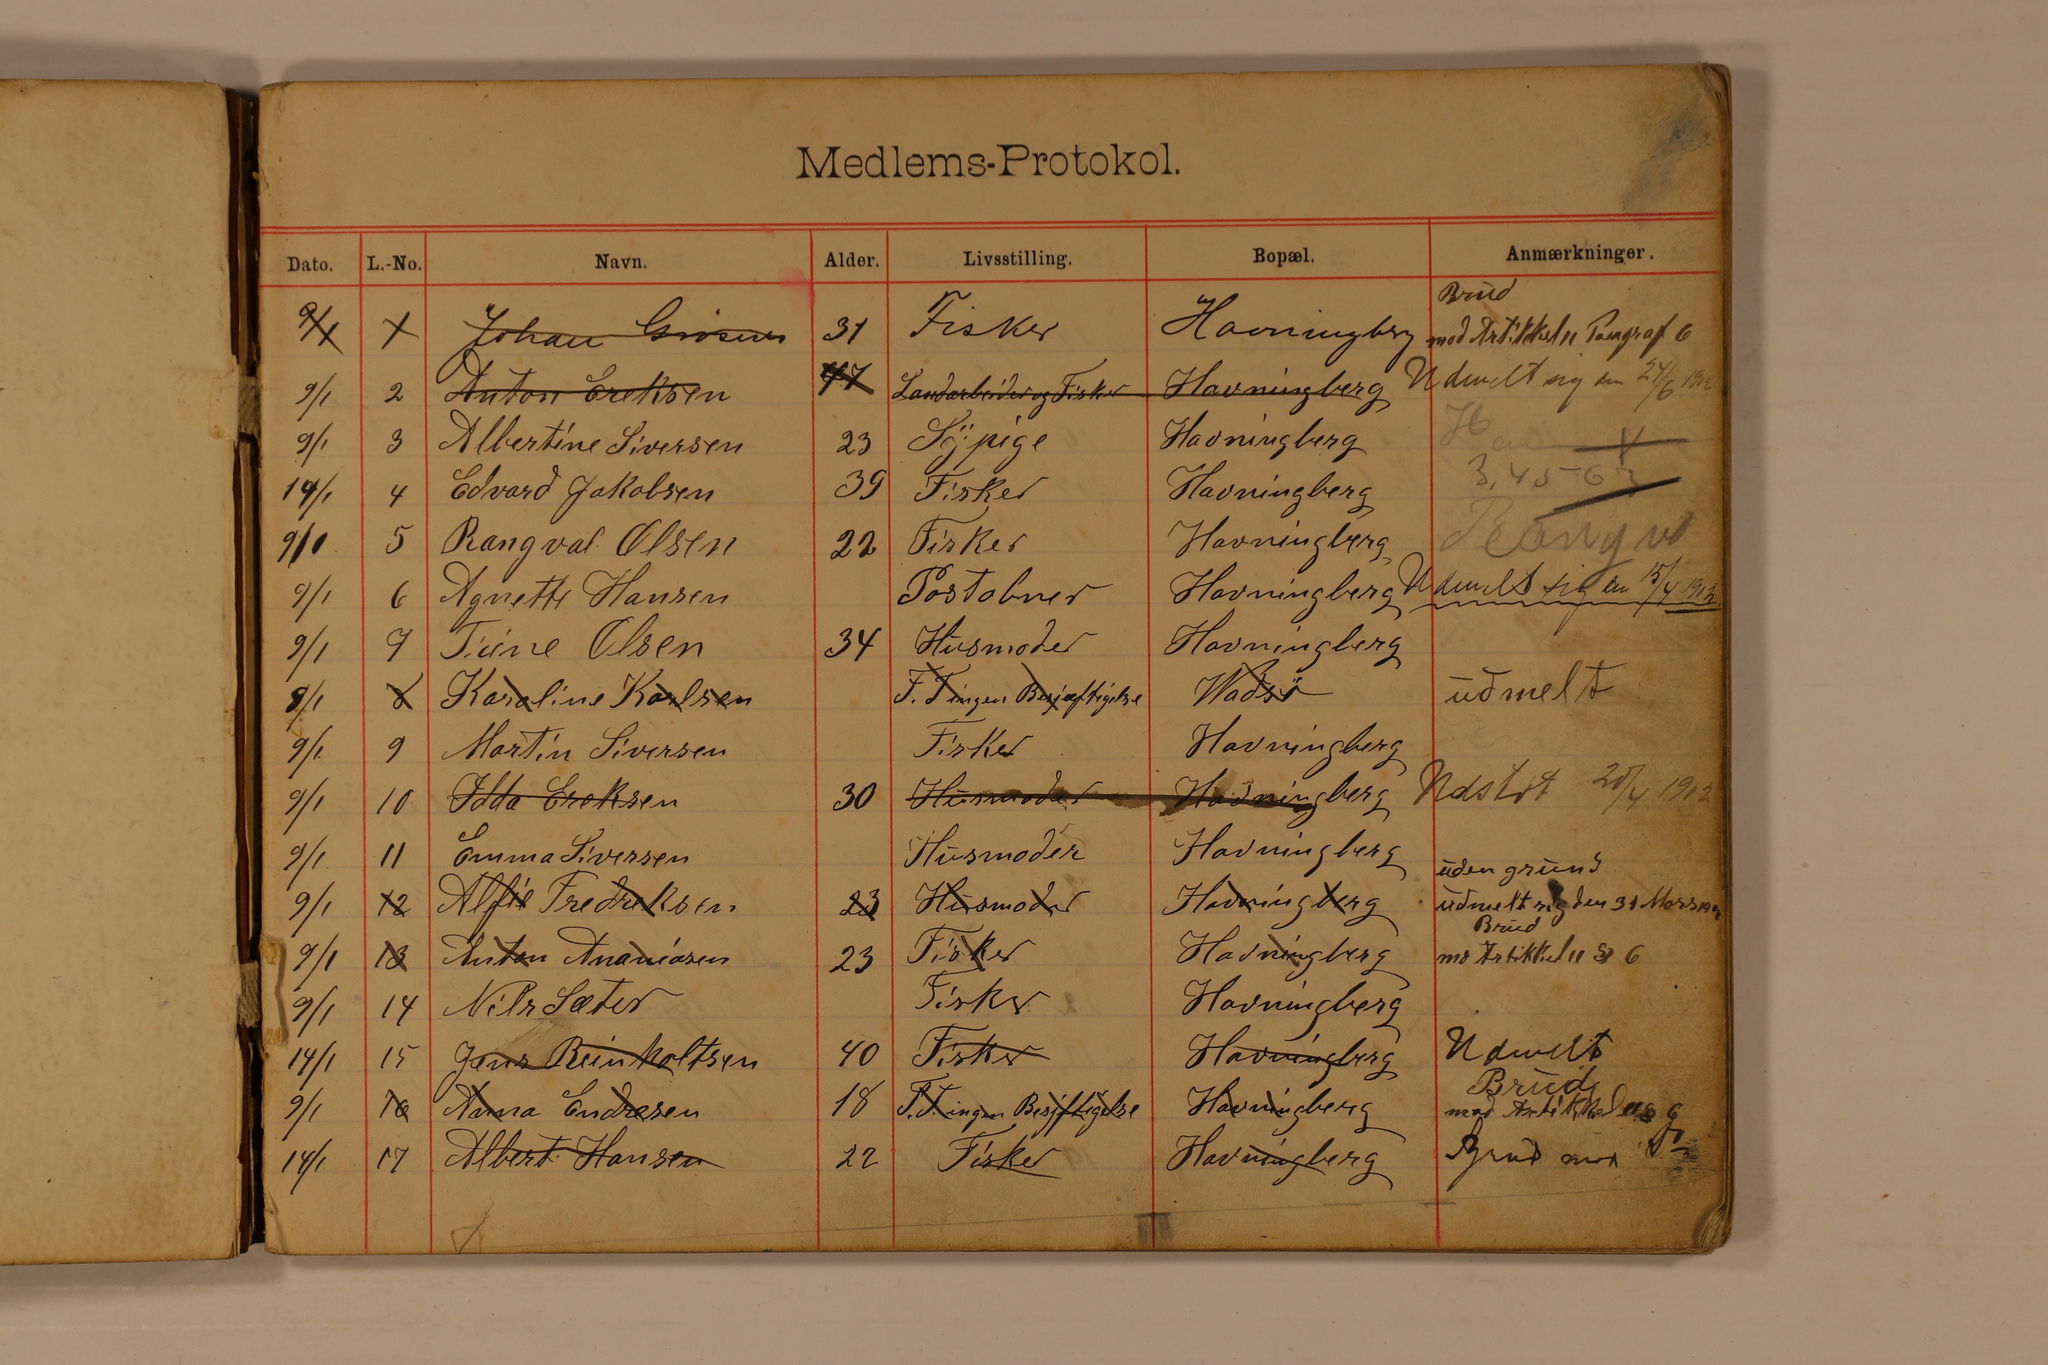 Medlems-Protokol.
Dato. L.-No. Navn. Alder. Livsstilling. Bopæl. Anmærkninger.
Brud
9/1 1 Johan 31 Fisker Havningberg mod Artikkel 11 Paragraf 6
9/1 2 Anton Ereksen 47 Landarbeider og Fisker Havningberg Udmelt sig den 24/6 1902
9/1 3 Albertine Siversen 23 Sÿpige Havningberg
14/1 4 Edvard Jakobsen 39 Fisker Havningberg 3,45-63
9/10 5 Rangval Olsen 22 Fisker Havningberg
9/1 6 Agnette Hansen Postobner Havningberg Udmelt sig den 15/4 1902
9/1 7 Trine Olsen 34 Husmoder Havningberg
8/1 8 Karoline Karlsen F. T ingen Besjæftigelse Wadsö udmelt
9/1 9 Martin Siversen Fisker Havningberg
9/1 10 Idda Ereksen 30 Husmoder Havningberg Udstöt 20/4 1902
9/1 11 Emma Siversen Husmoder Havningberg
uden grund
9/1 12 Alfie Fredreksen 23 Husmoder Havningberg udmelt sig den 31 Mars
Brud
9/1 13 Anton Ananiasen 23 Fisker Havningberg mo Artikkel 11 § 6
9/1 14 Nils Sæter Fisker Havningberg
14/1 15 Jens Reinholtsen 40 Fisker Havningberg Udmelt
Brud
9/1 16 Anna Endresen 18 F.T. ingen Besjftigelse Havningberg mod Artikkel 11 § 6
14/1 17 Albert Hansen 22 Fisker Havningberg Brud mod